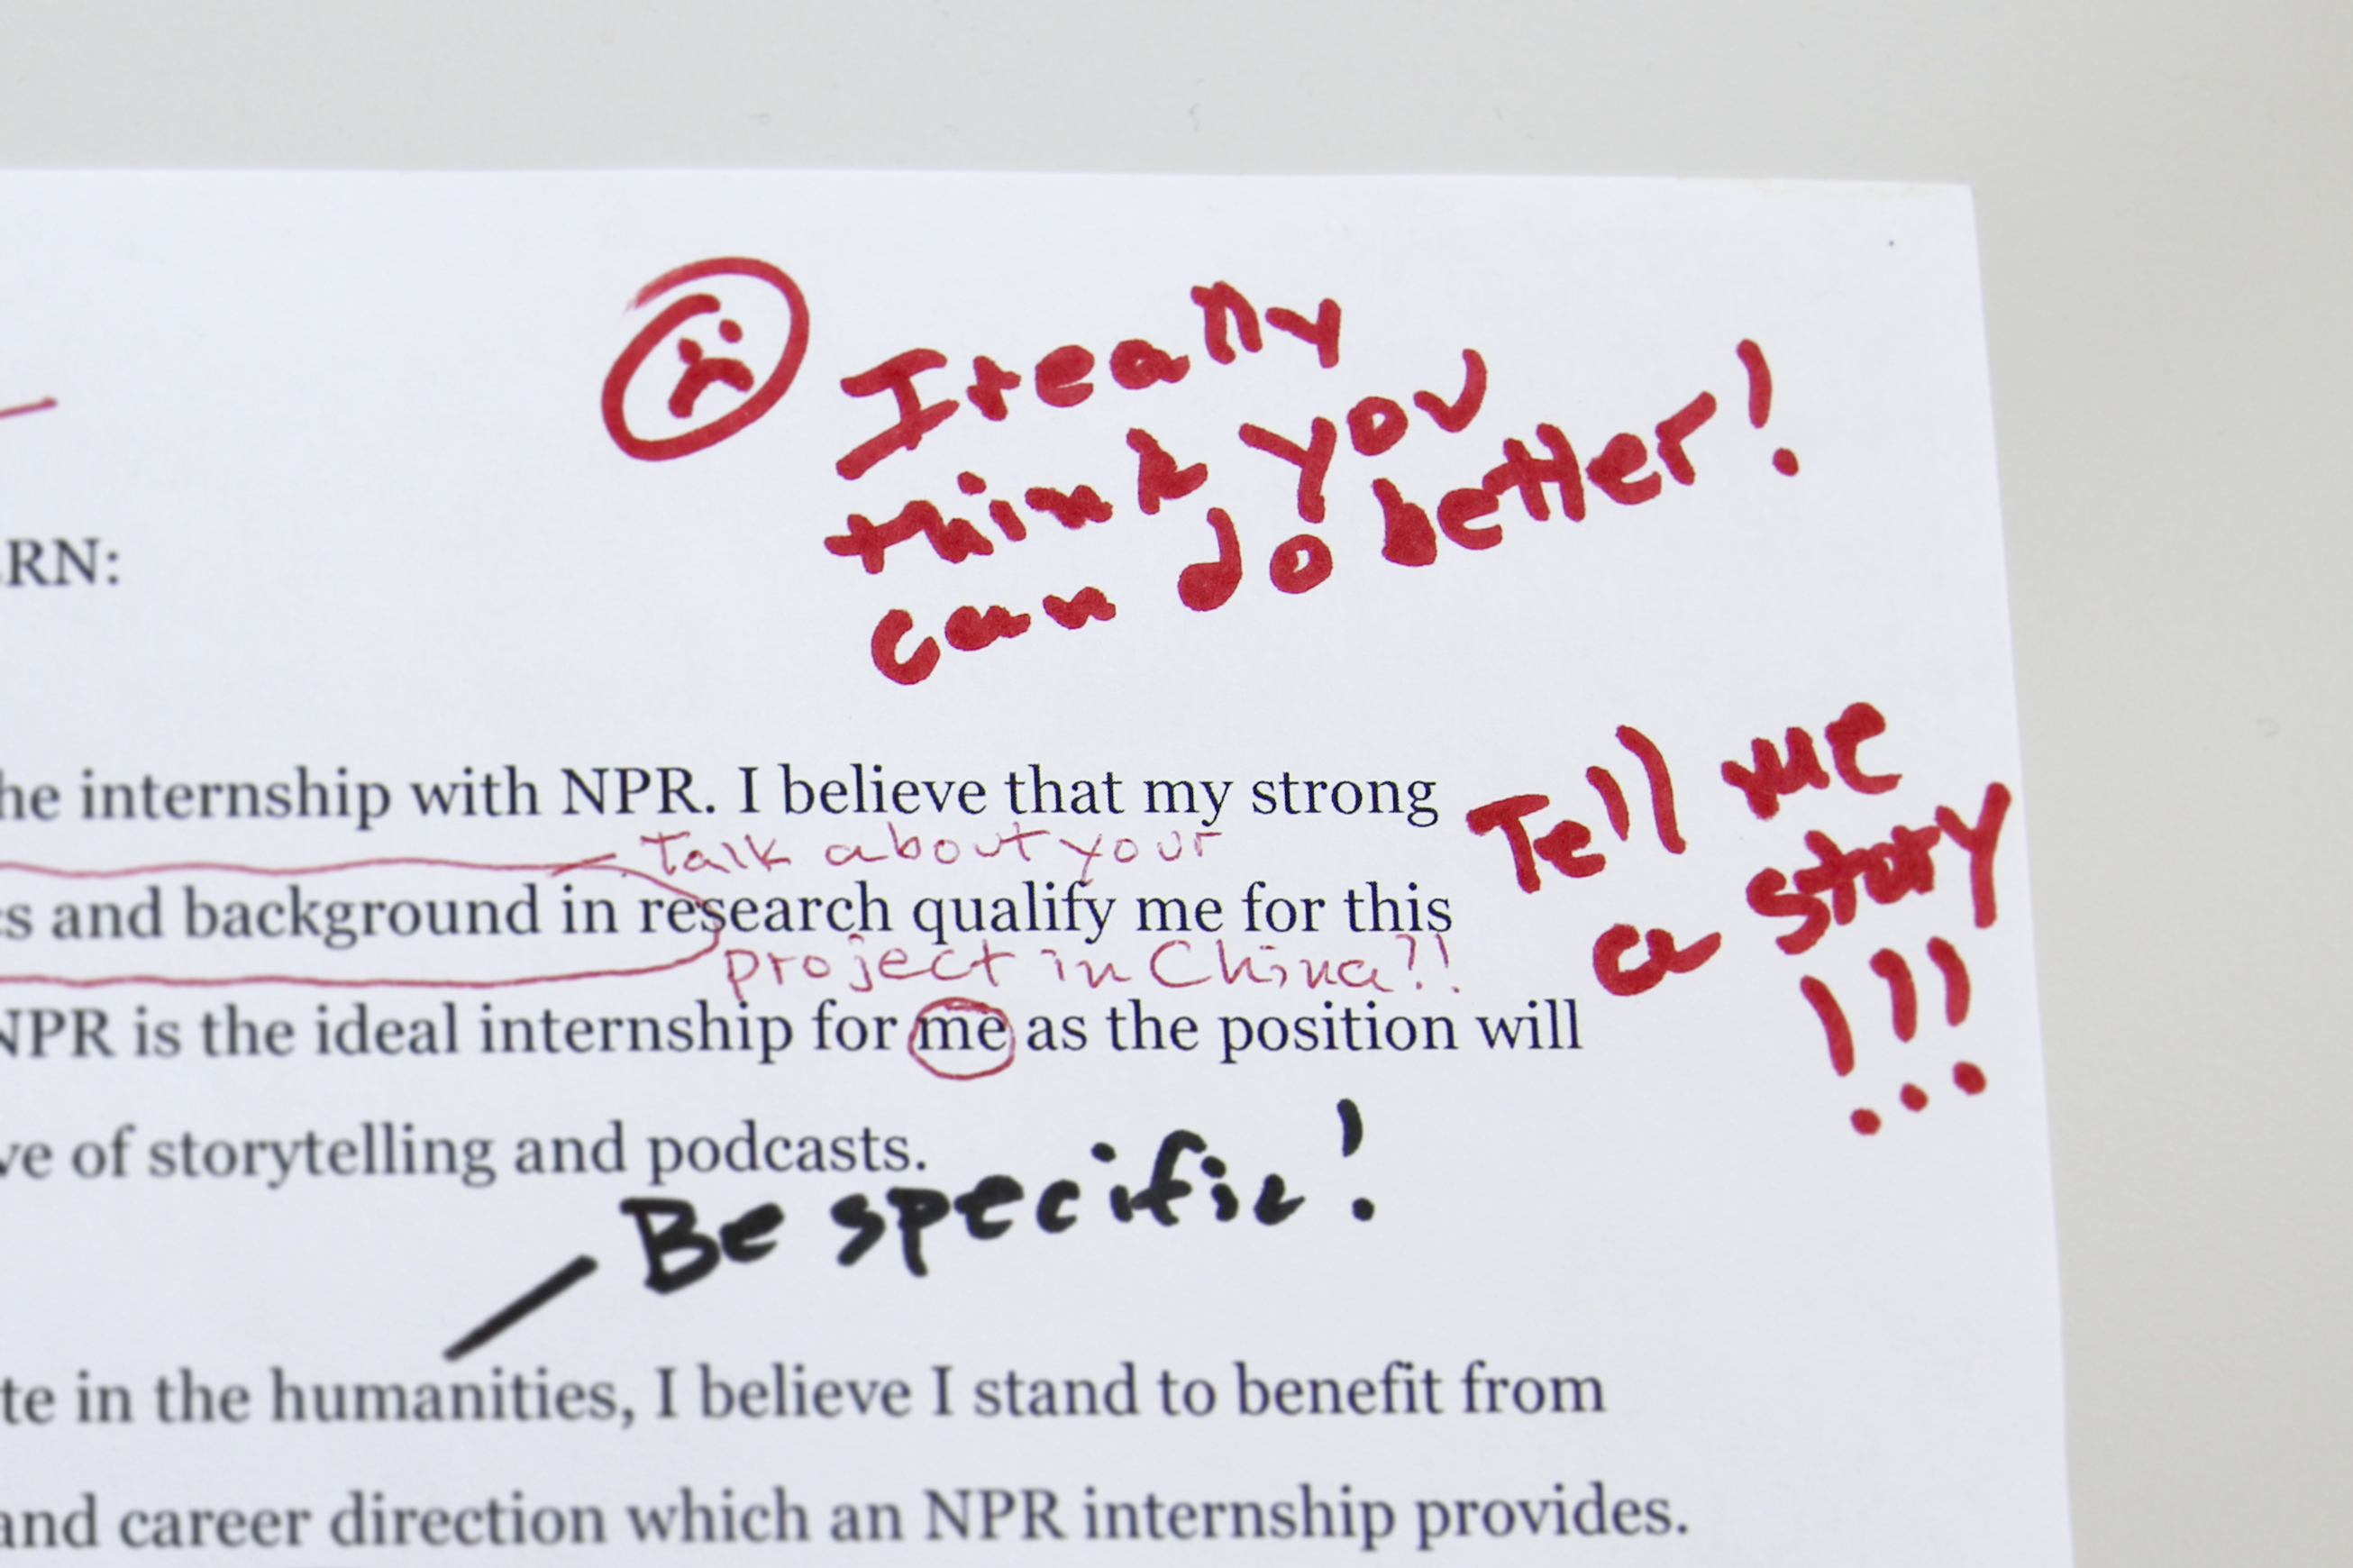 I really
think you
can do better!
RN:
he internship with NPR. I believe that my strong
Tell me
a story
!!!
Talk about your
s and background in research qualify me for this
project in China?!
NPR is the ideal internship for me as the position will
ve of storytelling and podcasts.
Be specific!
te in the humanities, I believe I stand to benefit from
and career direction which an NPR internship provides.